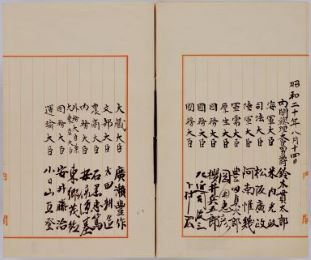 昭和二十年八月十四日
内閣総理大臣男爵 鈴木貫太郎
海軍大臣 米内光政
司法大臣 松阪廣政
陸軍大臣 阿南惟幾
軍需大臣 豊田貞次郎
厚生大臣 岡田忠彦
國務大臣 櫻井兵五郎
國務大臣 左近司政三
國務大臣 下村宏
大蔵大臣 廣瀬豊作
文部大臣 太田耕造
農商大臣 石黒忠篤
内務大臣 安倍源基
外務大臣兼大東亜大臣 東郷茂徳
國務大臣 安井藤治
運輸大臣 小日山直登